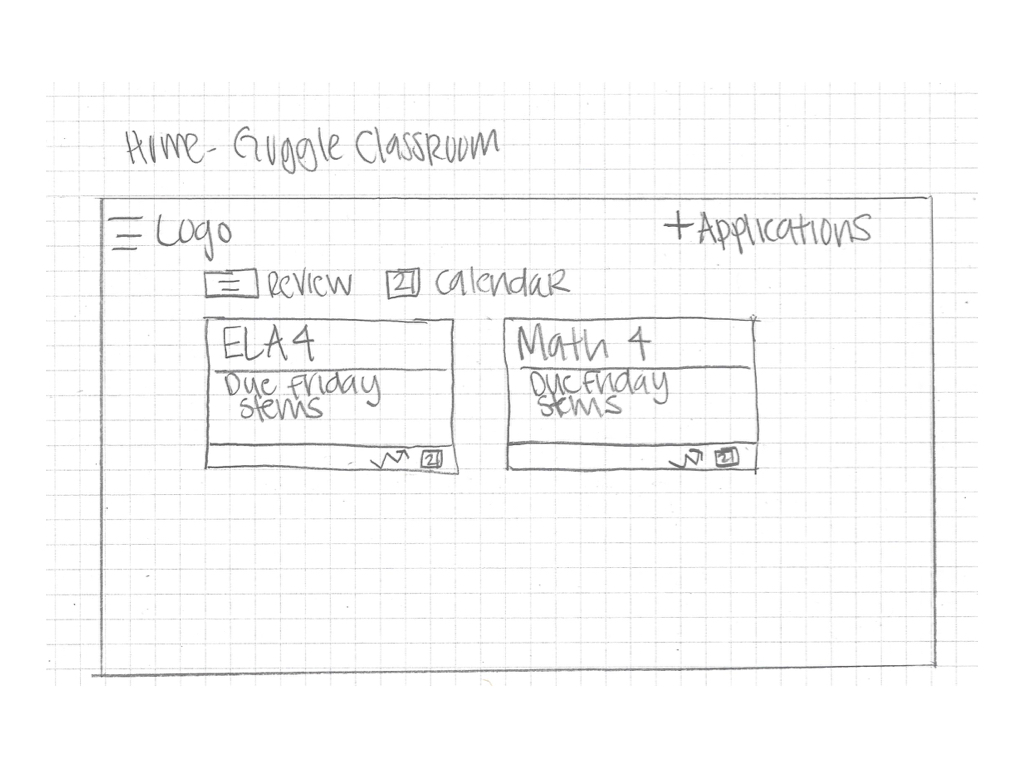 Home - Guggle Classroom
Logo
+ Applications
Review
21 Calendar
ELA 4
Due Friday
stems
21
Math 4
Due Friday
stems
21